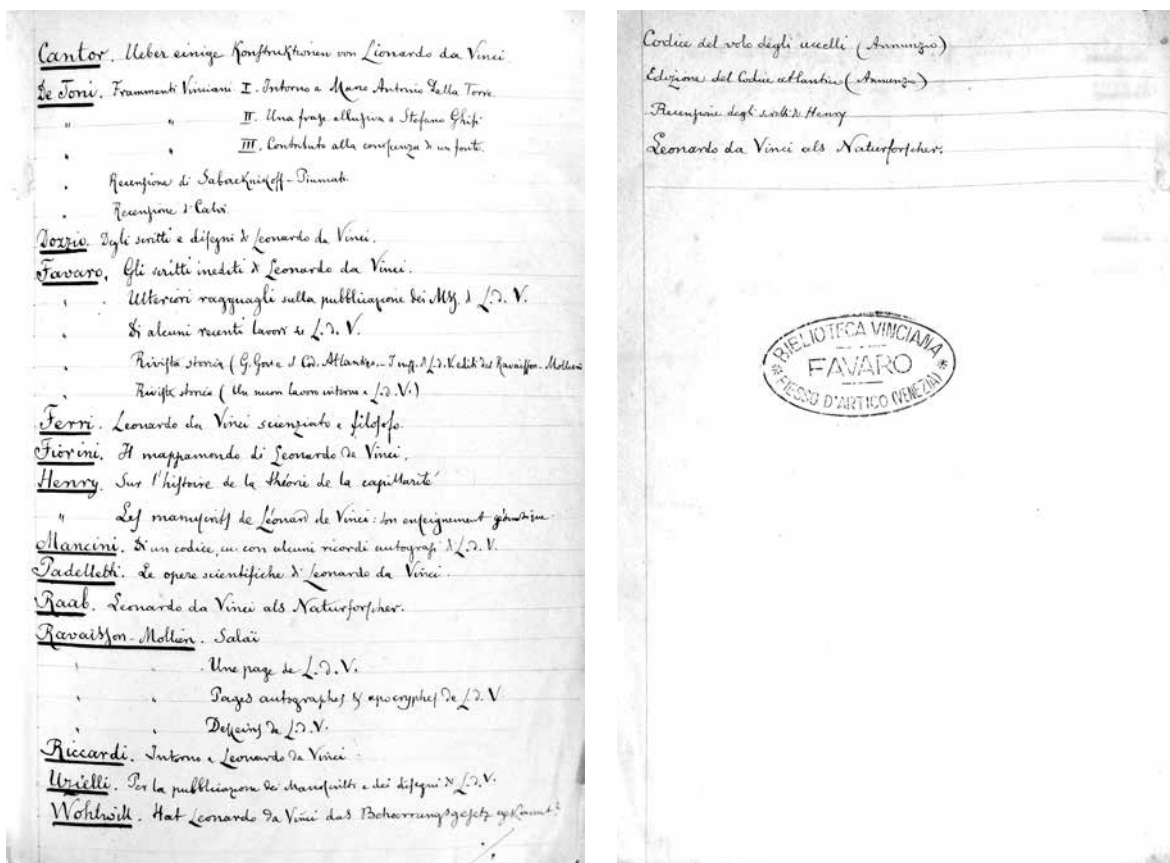 Cantor. Ueber einige Konstruktionen von Lionardo da Vinci
De Toni. Frammenti Vinciani I. Intorno a Marco Antonio Dalla Torre.
" " II. Una frase allusiva a Stefano Ghisi
" " III. Contributo alla conoscenza di un fonte.
" Recensione di Sabachnikoff-Piumati.
" Recensione d. Calvi.
Dozzio. Degli scritti e disegni di Leonardo da Vinci.
Favaro. Gli scritti inediti di Leonardo da Vinci.
" Ulteriori ragguagli sulla pubblicazione dei Mss. d. L. d. V.
" Di alcuni recenti lavori su L. d. V.
" Rivista storica (G. Govi e il Cod. Atlantico. - I mss. d. L. d. V. editi dal Ravaisson-Mollien
" Rivista storica (Un nuovo lavoro intorno a L. d. V.)
Ferri. Leonardo da Vinci scienziato e filosofo.
Fiorini. Il mappamondo di Leonardo da Vinci.
Henry. Sur l'histoire de la théorie de la capillarité
" Les manuscrits de Léonard de Vinci: son enseignement
Mancini. Di un codice, con alcuni ricordi autografi di L. d. V.
Padelletti. Le opere scientifiche di Leonardo da Vinci.
Raab. Leonardo da Vinci als Naturforscher.
Ravaisson-Mollien. Salaï
" " Une page de L. d. V.
" " Pages autographes & apocryphes de L. d. V
" " Dessins de L. d. V.
Riccardi. Intorno a Leonardo da Vinci
Uzielli. Per la pubblicazione dei Manoscritti e dei disegni di L. d. V.
Wohlwill. Hat Leonardo da Vinci das Beharrungsgesetz gekannt?
Cordice del volo degli uccelli (Annunzio)
Edizione del Codice atlantico (Annunzio)
Recensione degli scritti di Henry
Leonardo da Vinci als Naturforscher.
BIBLIOTECA VINCIANA
FAVARO
FIESSO D'ARTICO (VENEZIA)